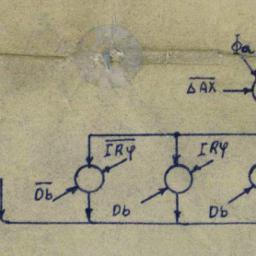 Фа
Δ̅A̅X̅
I̅R̅φ̅
IRφ
D̅b̅
Db
Db